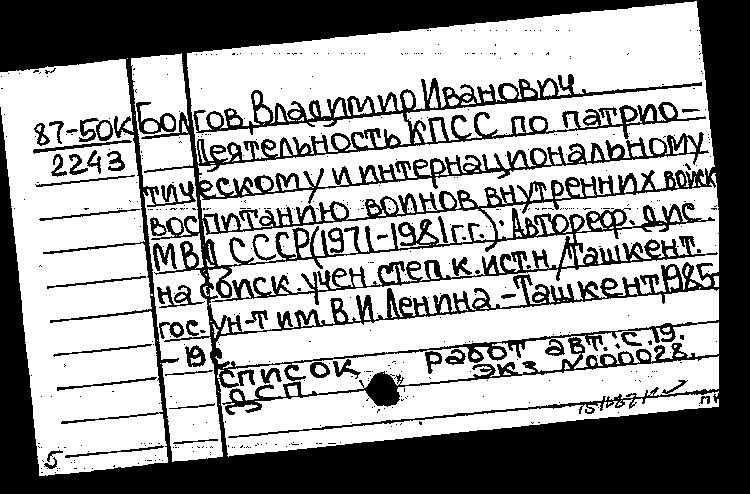 87-50К Болгов, Владимир Иванович.
2243 Деятельность КПСС по патрио-
тическому и интернациональному
воспитанию воинов внутренних войск
МВД СССР (1971-1981г.г.): Автореф. дис.
на соиск. учен. степ. к. ист. н. / Ташкент.
гос. ун-т им. В.И. Ленина. - Ташкент, 1985
- 19 с.
Список работ авт.: с. 19.
ДСП. Экз. №000028.
5